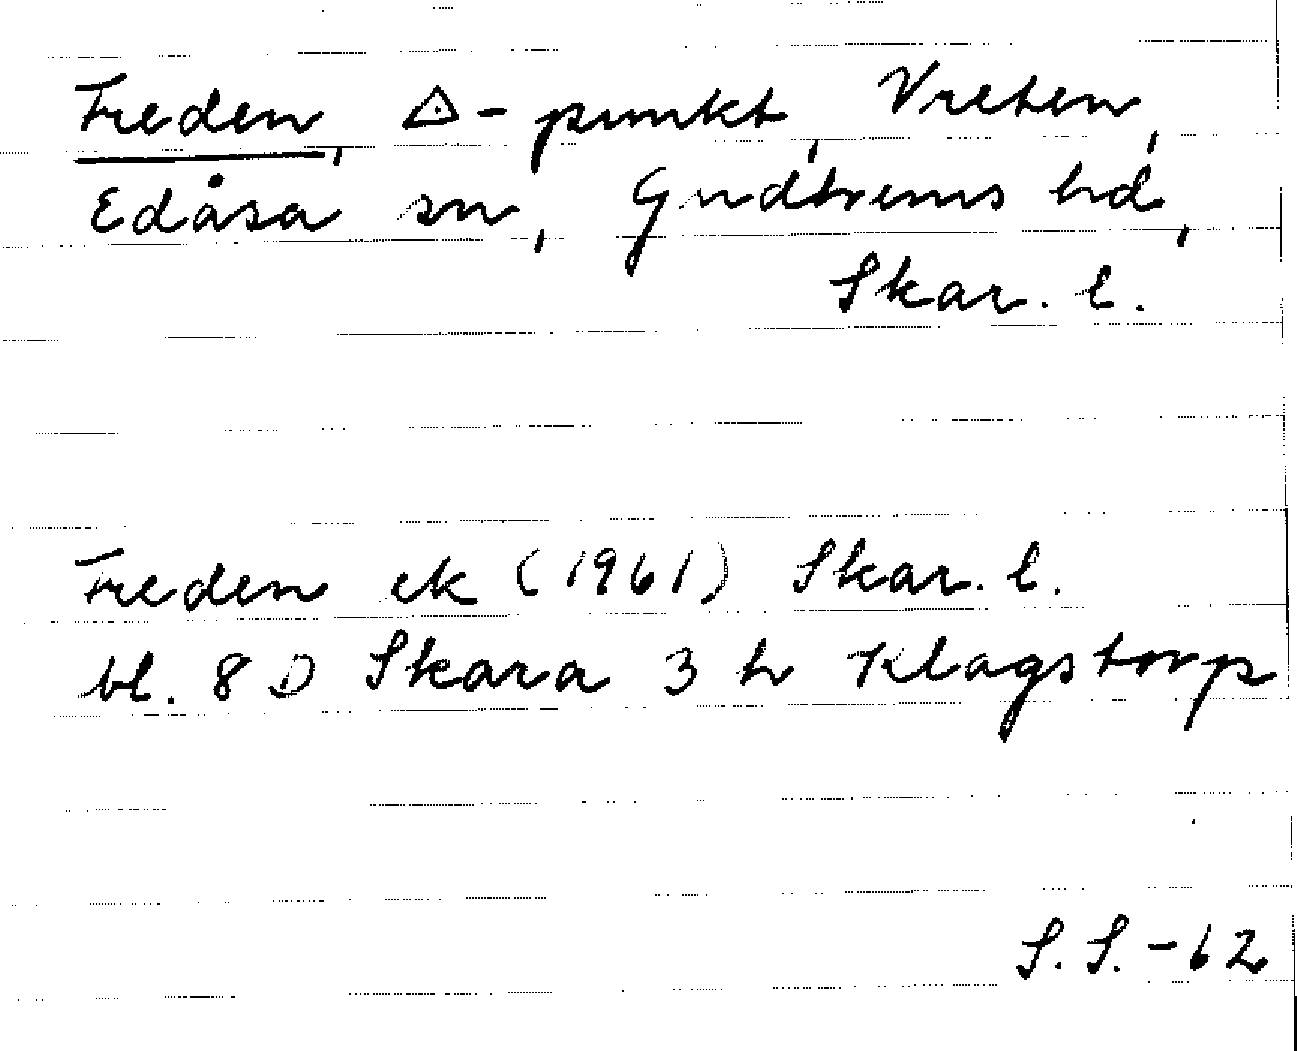 Freden, △-punkt, Vreten,
Edåsa sn, Gudhems hd,
Skar. l.
Freden ek (1961) Skar. l.
bl. 8 D Skara 3 h Klagstorp
S. S. -62